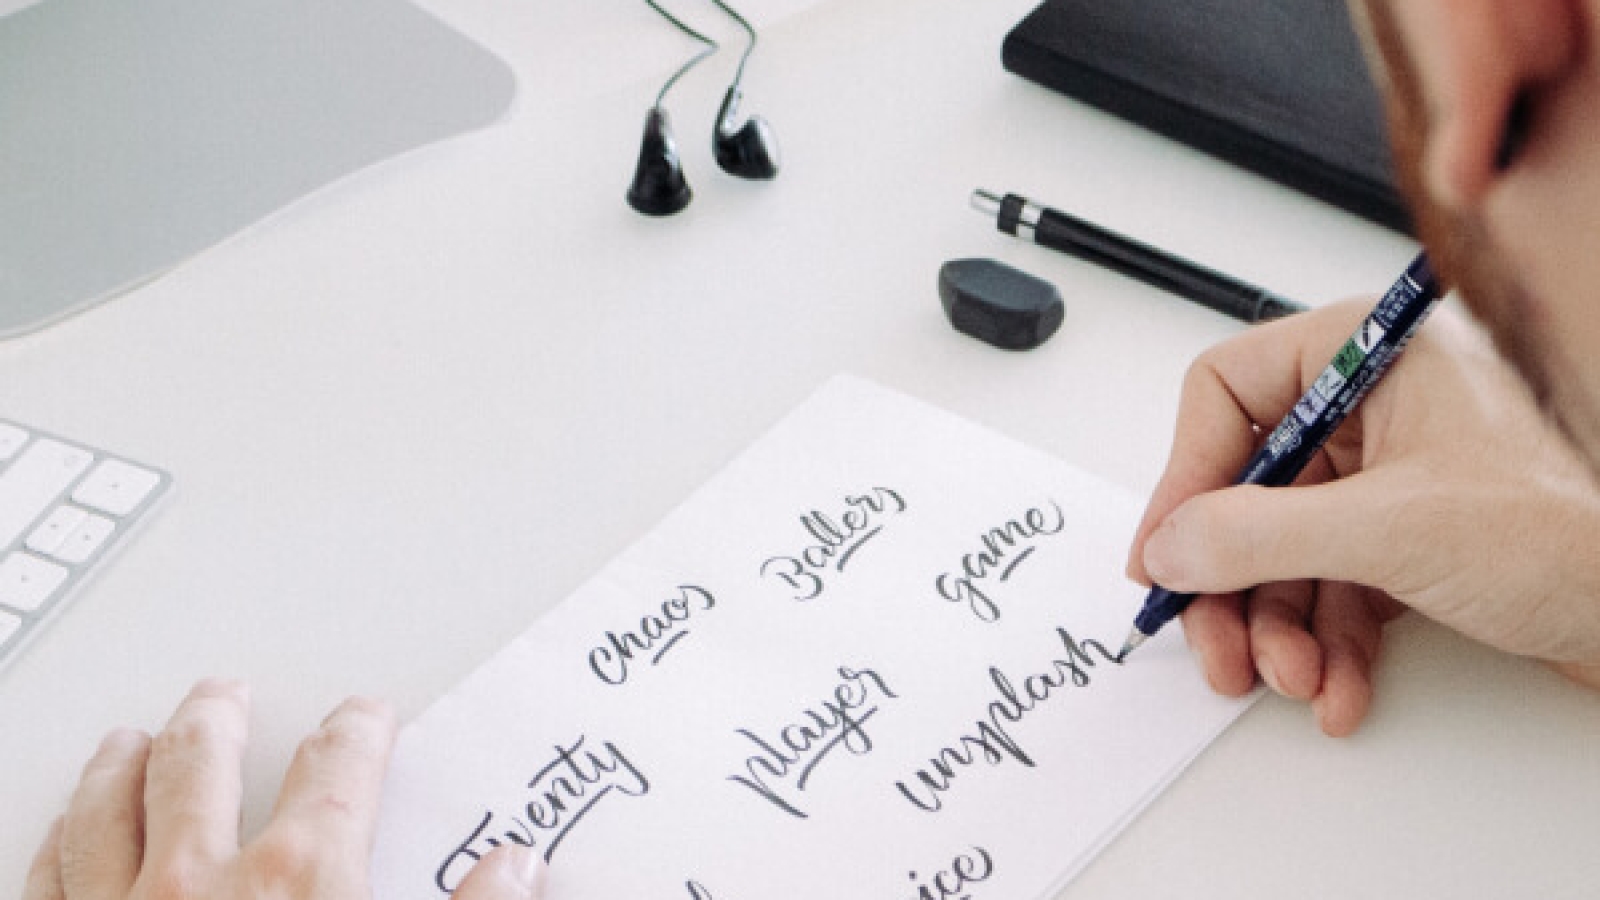 chaos Ballers game
Twenty player unsplash